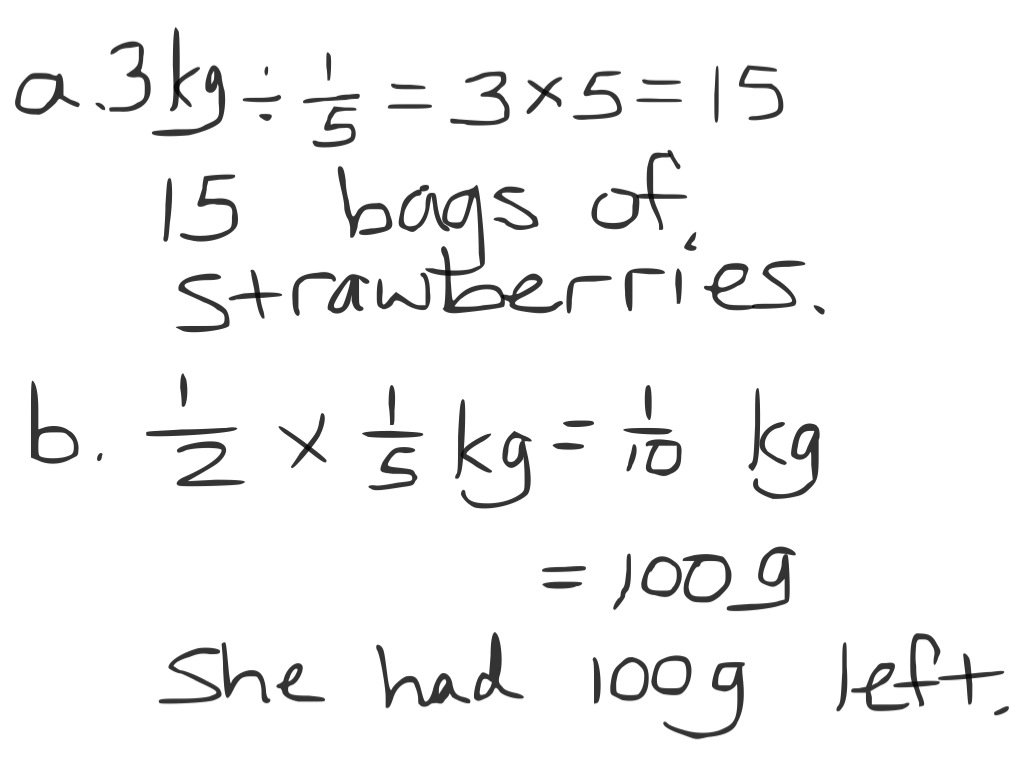 a. 3 kg ÷ 1/5 = 3 × 5 = 15
15 bags of
strawberries.
b. 1/2 × 1/5 kg = 1/10 kg
= 100 g
She had 100 g left.